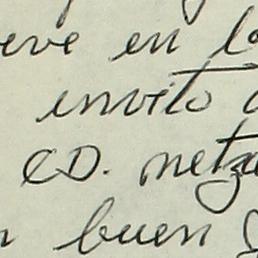 eve en la
invito a
CD. netza
n buen